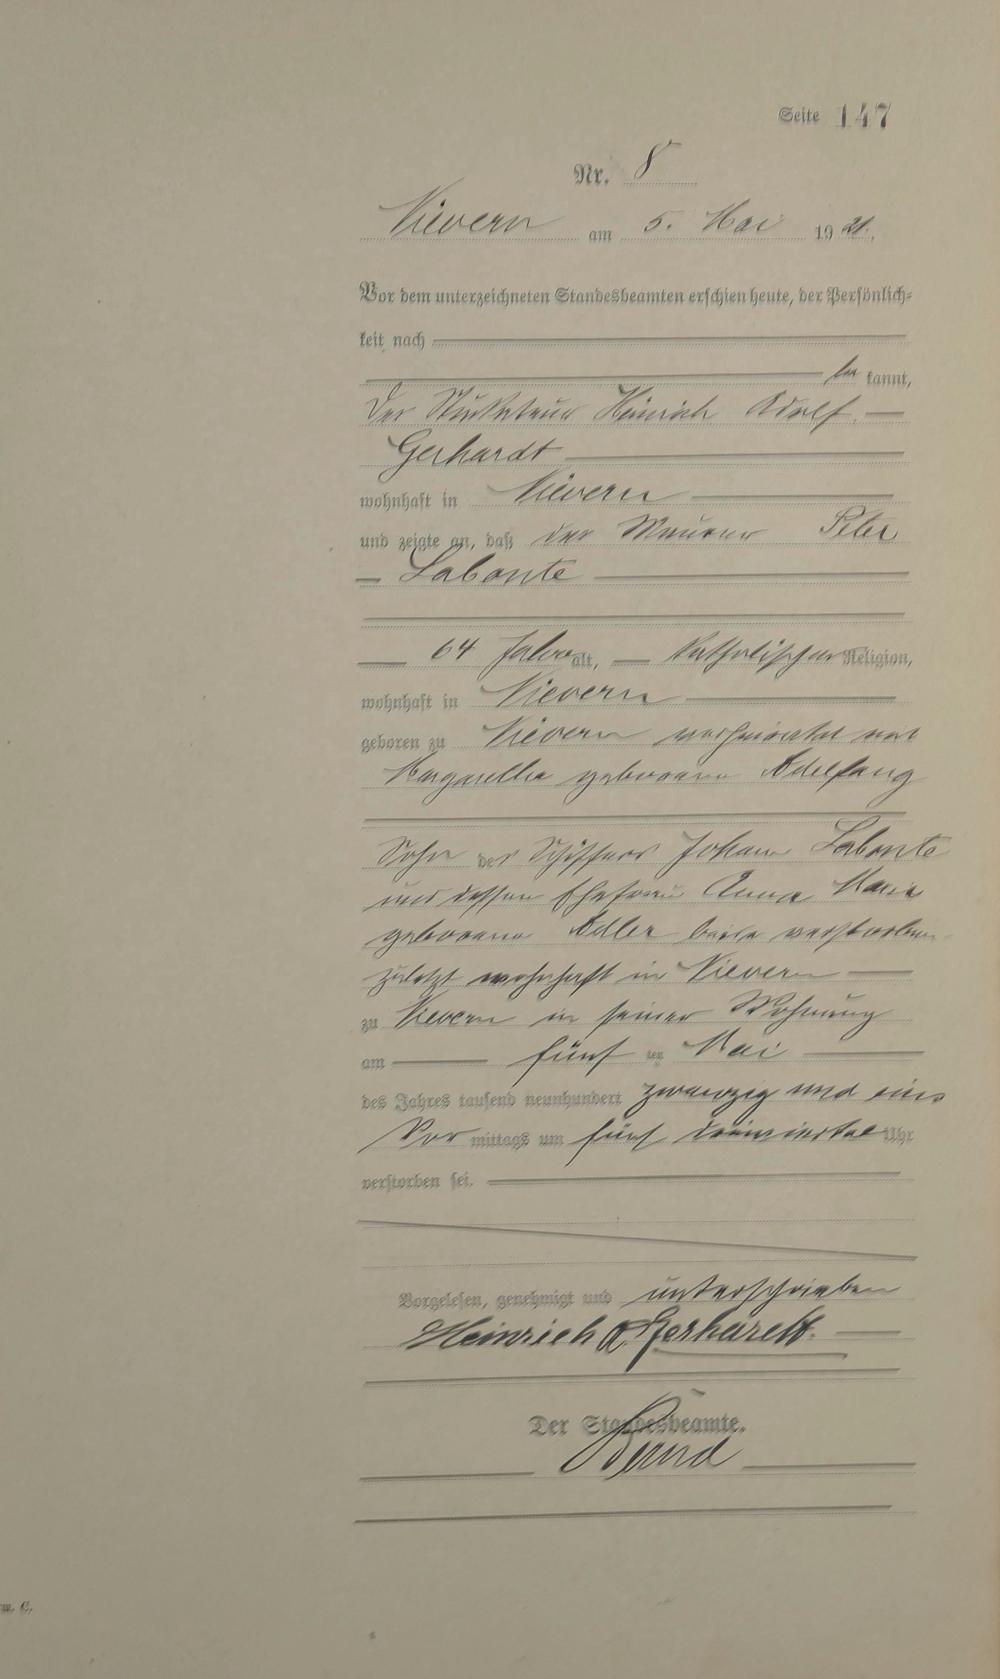 Seite 147
Nr. 8
Nievern am 5. Mai 1921.
Vor dem unterzeichneten Standesbeamten erschien heute, der Persönlich-
keit nach
be kannt,
der Stukateur Heinrich Adolf
Gerhardt
wohnhaft in Nievern
und zeigte an, daß der Maurer Peter
Labonte
64 Jahre alt, katholischer Religion,
wohnhaft in Nievern
geboren zu Nievern verheiratet mit
Margaretha geborene Adelfang
Sohn des Schiffers Johann Labonte
und dessen Ehefrau Anna Maria
geborene Adler beide verstorben
zuletzt wohnhaft in Nievern
zu Nievern in seiner Wohnung
am fünf ten Mai
des Jahres tausend neunhundert zwanzig und eins
Vor mittags um fünf dreiviertel Uhr
verstorben sei.
Vorgelesen, genehmigt und unterschrieben
Heinrich A. Gerhardt.
Der Standesbeamte.
Bernd
m. C.